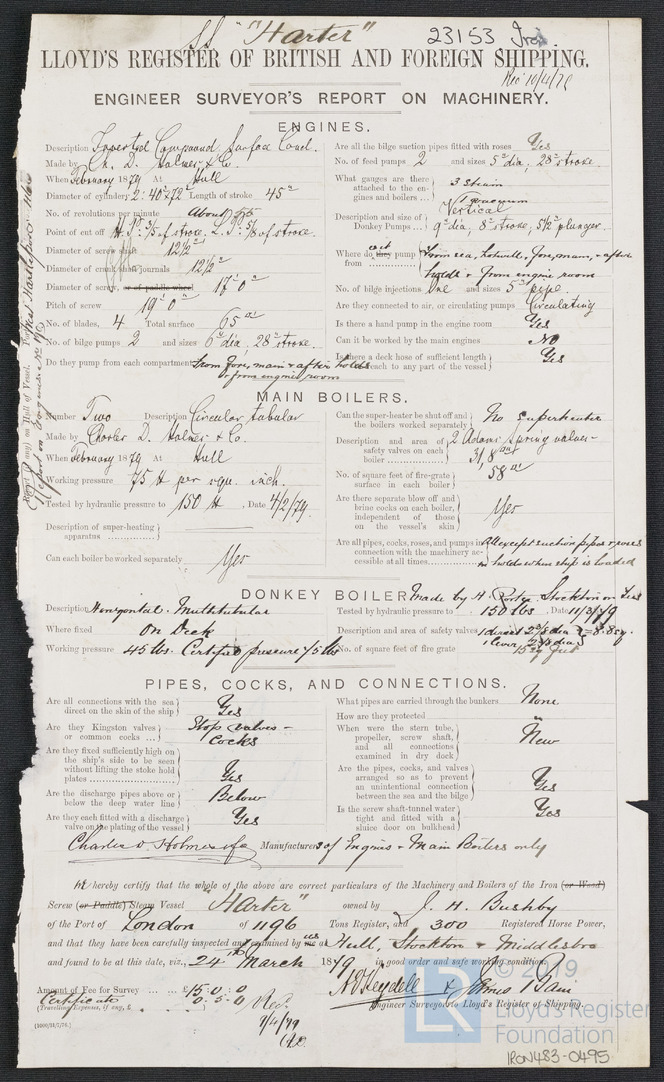 SS "Harter" 23153 Iron
LLOYD'S REGISTER OF BRITISH AND FOREIGN SHIPPING.
Rec 10/4/79
ENGINEER SURVEYOR'S REPORT ON MACHINERY.
ENGINES.
Description Inverted Compound Surface Cond.
Made by Ch. D. Holmes & Co.
When February 1879 At Hull
Diameter of cylinders 2: 40" & 72" Length of stroke 45"
No. of revolutions per minute About 75
Point of cut off H.P. 3/5 of stroke. L.P. 5/8 of stroke.
Diameter of screw shaft 12 1/2"
Diameter of crank shaft journals 12 1/2"
Diameter of screw, or of paddle wheel 17' 0"
Pitch of screw 19' 0"
No. of blades, 4 Total surface 65
No. of bilge pumps 2 and sizes 6" dia, 28" stroke.
Do they pump from each compartment from fore, main & after holds
& from engine room
Are all the bilge suction pipes fitted with roses Yes
No. of feed pumps 2 and sizes 5" dia, 28" stroke.
What gauges are there attached to the engines and boilers ... 3 steam
1 vacuum
Description and size of Donkey Pumps ... Vertical
9" dia, 8" stroke, 5 1/2" plunger.
Where do they pump from From sea, hotwell, fore, main, & after
holds & from engine room
No. of bilge injections One and sizes 5" pipe.
Are they connected to air, or circulating pumps Circulating
Is there a hand pump in the engine room Yes
Can it be worked by the main engines No
Is there a deck hose of sufficient length to reach to any part of the vessel Yes
MAIN BOILERS.
Number Two Description Circular tubular
Made by Charles D. Holmes & Co.
When February 1879 At Hull
Working pressure 75 lb per squ. inch.
Tested by hydraulic pressure to 150 lb, Date 4/2/79.
Description of super-heating apparatus
Can each boiler be worked separately Yes
Can the super-heater be shut off and the boilers worked separately No superheater
Description and area of safety valves on each boiler 2 Adams Spring valves
31,8
No. of square feet of fire-grate surface in each boiler 58
Are there separate blow off and brine cocks on each boiler, independent of those on the vessel's skin Yes
Are all pipes, cocks, roses, and pumps in connection with the machinery accessible at all times All except suction pipes & roses
in holds when ship is loaded
DONKEY BOILER. Made by H. Porter, Stockton on Tees
Description Horizontal Multitubular
Where fixed On Deck
Working pressure 45 lbs. Certified pressure 75 lbs
Tested by hydraulic pressure to 150 lbs, Date 11/3/79
Description and area of safety valves 1 direct 2 3/8 dia
1 lever 2 3/8 dia = 8.8 sq.
No. of square feet of fire grate 15 sq feet
PIPES, COCKS, AND CONNECTIONS.
Are all connections with the sea direct on the skin of the ship Yes
Are they Kingston valves or common cocks ... Stop valves & Cocks
Are they fixed sufficiently high on the ship's side to be seen without lifting the stoke hold plates Yes
Are the discharge pipes above or below the deep water line Below
Are they each fitted with a discharge valve on the plating of the vessel Yes
What pipes are carried through the bunkers None
How are they protected "
When were the stern tube, propeller, screw shaft, and all connections examined in dry dock New
Are the pipes, cocks, and valves arranged so as to prevent an unintentional connection between the sea and the bilge Yes
Is the screw shaft-tunnel water tight and fitted with a sluice door on bulkhead Yes
Charles D Holmes & Co Manufacturers of Engines & Main Boilers only
We hereby certify that the whole of the above are correct particulars of the Machinery and Boilers of the Iron (or Wood)
Screw (or Paddle) Steam Vessel "Harter" owned by J. H. Bushby
of the Port of London of 1196 Tons Register, and 300 Registered Horse Power,
and that they have been carefully inspected and examined by us at Hull, Stockton & Middlesbro
and found to be at this date, viz., 24th March 1879 in good order and safe working condition.
Amount of Fee for Survey ... £15 : 0 : 0
Certificate 0 . 5 . 0
(Travelling Expense, if any, £
Rec.
9/4/79
A D Heydell & James Bain
Engineer Surveyors to Lloyd's Register of Shipping.
LR
© 2019
Lloyd's Register
Foundation
IRON483-0495